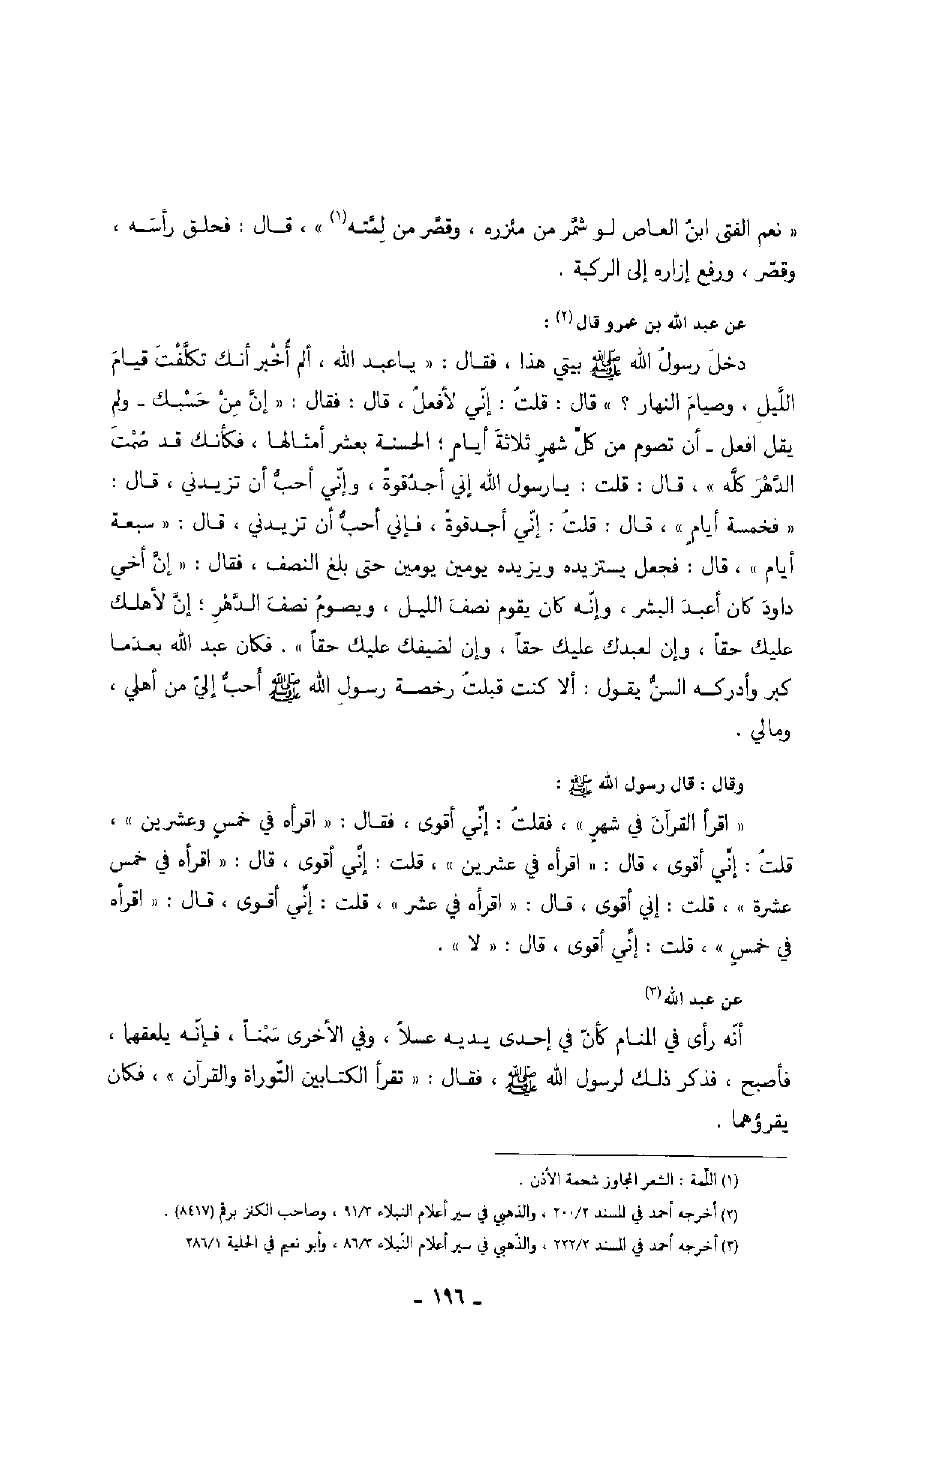 « نعم الفتى ابنُ العاص لو شمَّر من مئزره ، وقصَّر من لِمَّته(١) » ، قال : فحلق رأسَه ،
وقصّر ، ورفع إزاره إلى الركبة .
عن عبد الله بن عمرو قال(٢) :
دخلَ رسولُ الله ﷺ بيتي هذا ، فقال : « ياعبد الله ، ألم أُخْبر أنك تكلَّفْتَ قيامَ
اللَّيل ، وصيامَ النهار ؟ » قال : قلتُ : إنّي لأفعلُ ، قال : فقال : « إنَّ مِنْ حَسْبك ـ ولم
يقل افعل ـ أن تصوم من كلّ شهرٍ ثلاثةَ أيام ؛ الحسنة بعشر أمثالها ، فكأنك قد صُمْتَ
الدَّهْرَ كلَّه » ، قال : قلت : يارسول الله إني أجدُقوةً ، وإنّي أحبُّ أن تزيدني ، قال :
« فخمسة أيامٍ » ، قال : قلتُ : إنّي أجدقوةً ، فإني أحبُّ أن تزيدني ، قال : « سبعة
أيام » ، قال : فجعل يستزيده ويزيده يومين يومين حتى بلغ النصف ، فقال : « إنَّ أخي
داودَ كان أعبدَ البشر ، وإنَّه كان يقوم نصفَ الليل ، ويصومُ نصفَ الدَّهْرِ ؛ إنَّ لأهلك
عليك حقاً ، وإن لعبدك عليك حقاً ، وإن لضيفك عليك حقاً » . فكان عبد الله بعدَما
كبر وأدركه السنُّ يقول : ألا كنت قبلتُ رخصة رسولِ الله ﷺ أحبُّ إليّ من أهلي ،
ومالي .
وقال : قال رسول الله ﷺ :
« اقرأ القرآنَ في شهرٍ » ، فقلتُ : إنّي أقوى ، فقال : « اقرأه في خمسٍ وعشرين » ،
قلتُ : إنّي أقوى ، قال : « اقرأه في عشرين » ، قلت : إنّي أقوى ، قال : « اقرأه في خمس
عشرة » ، قلت : إني أقوى ، قال : « اقرأه في عشر » ، قلت : إنّي أقوى ، قال : « اقرأه
في خمسٍ » ، قلت : إنّي أقوى ، قال : « لا » .
عن عبد الله(٣)
أنّه رأى في المنام كأنّ في إحدى يديه عسلاً ، وفي الأخرى سَمْناً ، فإنّه يلعقها ،
فأصبح ، فذكر ذلك لرسول الله ﷺ ، فقال : « تقرأ الكتابين التّوراة والقرآن » ، فكان
يقرؤهما .
(١) اللّمة : الشعر المجاوز شحمة الأذن .
(٢) أخرجه أحمد في المسند ٢٠٠/٢ ، والذهبي في سير أعلام النبلاء ٩١/٣ ، وصاحب الكنز برقم (٨٤١٧) .
(٣) أخرجه أحمد في المسند ٢٢٢/٢ ، والذّهبي في سير أعلام النّبلاء ٨٦/٣ ، وأبو نعيم في الحلية ٢٨٦/١
ـ ١٩٦ ـ